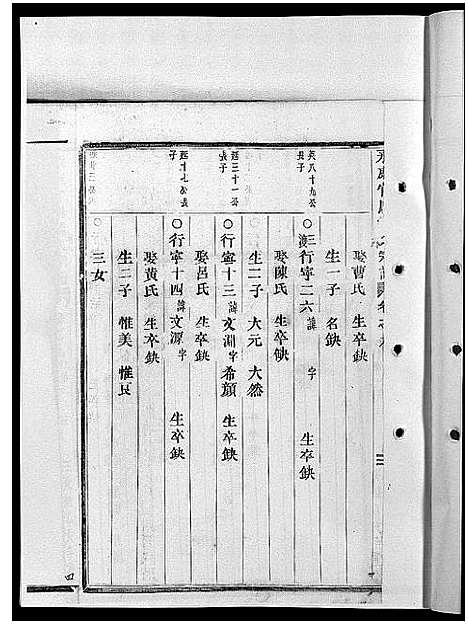 娶曹氏 生卒缺
生一子 名缺
英八十九公長子
三渡 行寧二六 諱 字 生卒缺
娶陳氏 生卒缺
生二子 大元 大然
廷三十一公長子
行寧十三 諱文淵 字希顏 生卒缺
娶呂氏 生卒缺
廷十七公長子
行寧十四 諱文源 字 生卒缺
娶黃氏 生卒缺
生二子 惟美 惟良
三女
四